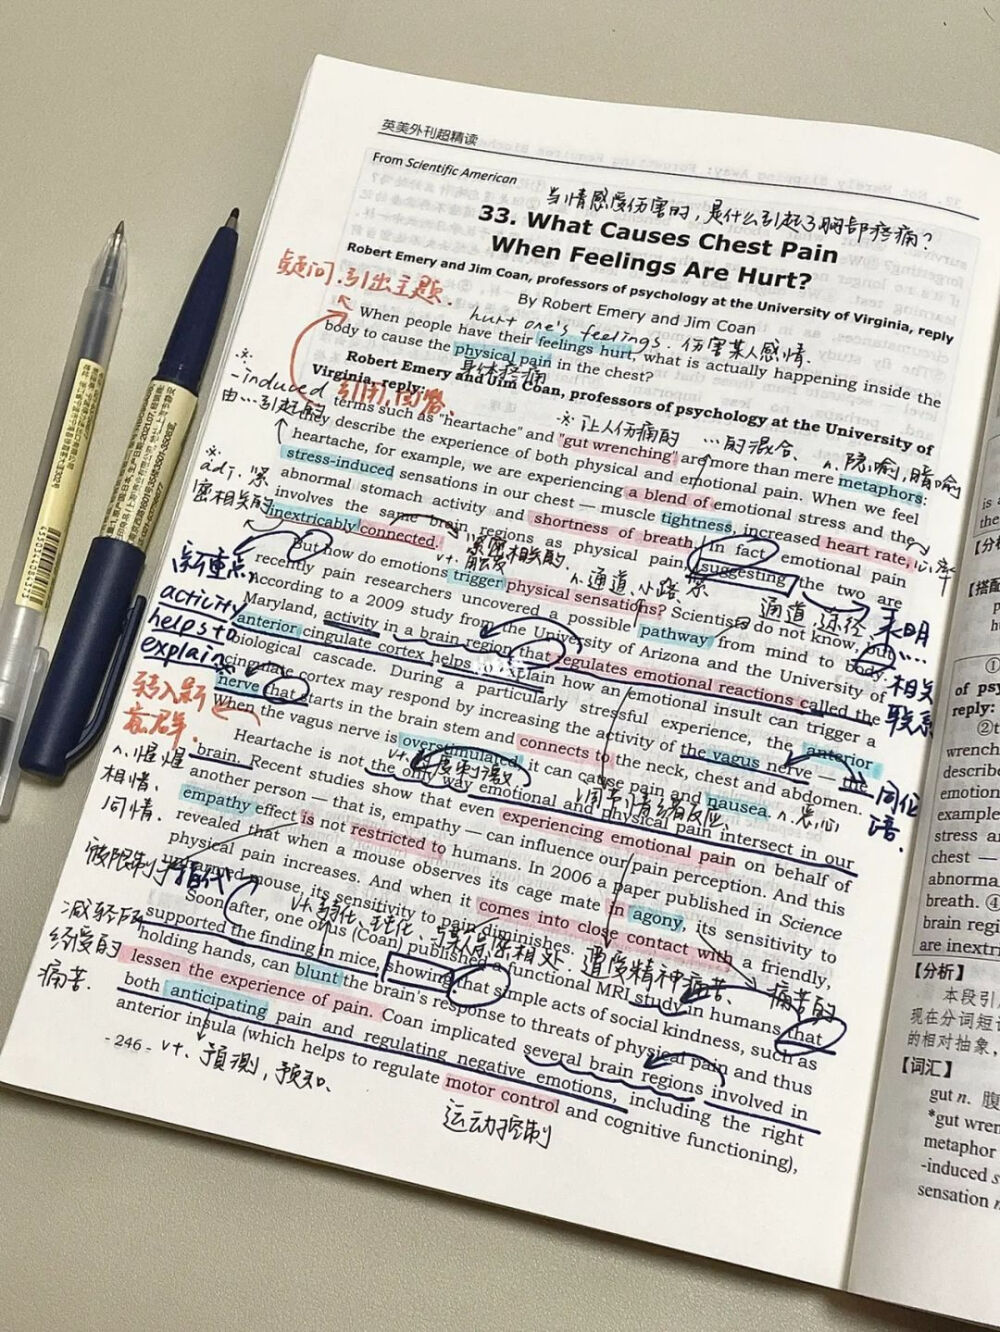 英美外刊超精读
From Scientific American
当情感受伤害时,是什么引起了胸部疼痛?
33. What Causes Chest Pain
When Feelings Are Hurt?
Robert Emery and Jim Coan, professors of psychology at the University of Virginia, reply
By Robert Emery and Jim Coan
疑问,引出主题.
hurt one's feelings. 伤害某人感情.
When people have their feelings hurt, what is actually happening inside the
body to cause the physical pain in the chest?
身体疼痛
Robert Emery and Jim Coan, professors of psychology at the University of
Virginia, reply:
※
-induced
由…引起的
※ 让人伤痛的
…的混合、
n. 隐喻,暗喻
terms such as "heartache" and "gut wrenching" are more than mere metaphors:
they describe the experience of both physical and emotional pain. When we feel
heartache, for example, we are experiencing a blend of emotional stress and the
stress-induced sensations in our chest — muscle tightness, increased heart rate,
abnormal stomach activity and shortness of breath. In fact, emotional pain
involves the same brain regions as physical pain, suggesting the two are
inextricably connected.
※
adj. 紧
密相关的
紧密相关的
心率
v. 触发
n. 通道、小路、
通道,途径,
表明
But how do emotions trigger physical sensations? Scientists do not know, but
recently pain researchers uncovered a possible pathway from mind to body.
According to a 2009 study from the University of Arizona and the University of
Maryland, activity in a brain region that regulates emotional reactions called the
anterior cingulate cortex helps explain how an emotional insult can trigger a
biological cascade. During a particularly stressful experience, the anterior
cingulate cortex may respond by increasing the activity of the vagus nerve — the
nerve that starts in the brain stem and connects to the neck, chest and abdomen.
When the vagus nerve is overstimulated, it can cause pain and nausea.
新重点,
activity
helps to
explain
相关
联系
同位
语.
转入新
v. 过度刺激
调节情绪反应.
n. 恶心
Heartache is not the only way emotional and physical pain intersect in our
brain. Recent studies show that even experiencing emotional pain on behalf of
another person — that is, empathy — can influence our pain perception. And this
empathy effect is not restricted to humans. In 2006 a paper published in Science
revealed that when a mouse observes its cage mate in agony, its sensitivity to
physical pain increases. And when it comes into close contact with a friendly,
mouse, its sensitivity to pain diminishes.
同情.
被限制于
指代
与某人亲密相处.
遭受精神痛苦、
痛苦的
Soon after, one of us (Coan) published a functional MRI study in humans that
supported the finding in mice, showing that simple acts of social kindness, such as
holding hands, can blunt the brain's response to threats of physical pain and thus
lessen the experience of pain. Coan implicated several brain regions involved in
both anticipating pain and regulating negative emotions, including the right
anterior insula (which helps to regulate motor control and cognitive functioning),
痛苦.
- 246 -
vt. 预测,预知.
运动控制
【词汇】
【分析】
本段引
现在分词短
的相对抽象,
gut n. 腹
*gut wren
metaphor
-induced s
sensation n